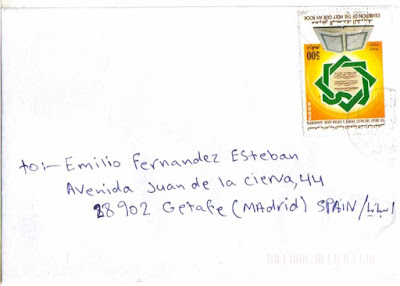 EXHIBITION OF THE HOLY QUR'AN BOOK
500
to:- Emilio Fernandez Esteban
Avenida Juan de la cierva, 44
28902 Getafe (MAdrid) SPAIN / اسبانيا